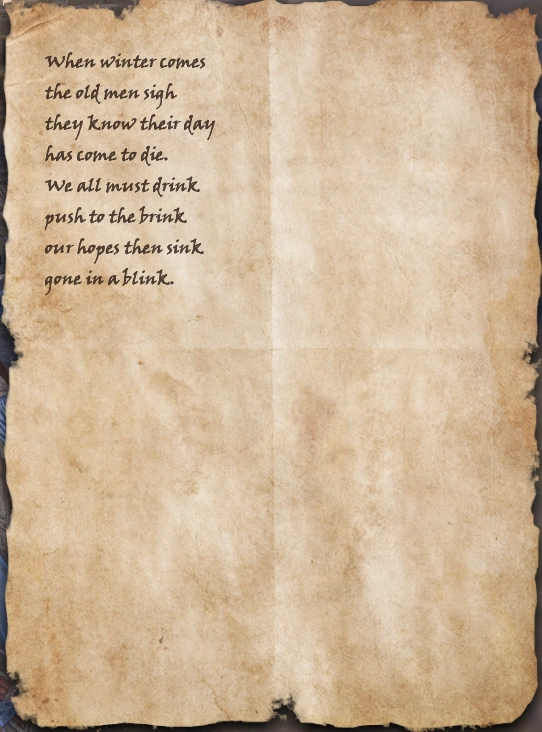 When winter comes
the old men sigh
they know their day
has come to die.
We all must drink
push to the brink
our hopes then sink
gone in a blink.